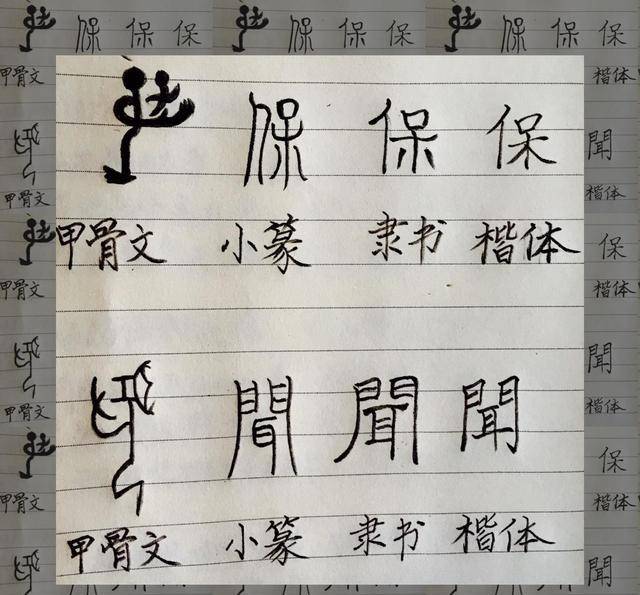 保 保 保 保
甲骨文 小篆 隶书 楷体
聞 聞 聞 聞
甲骨文 小篆 隶书 楷体